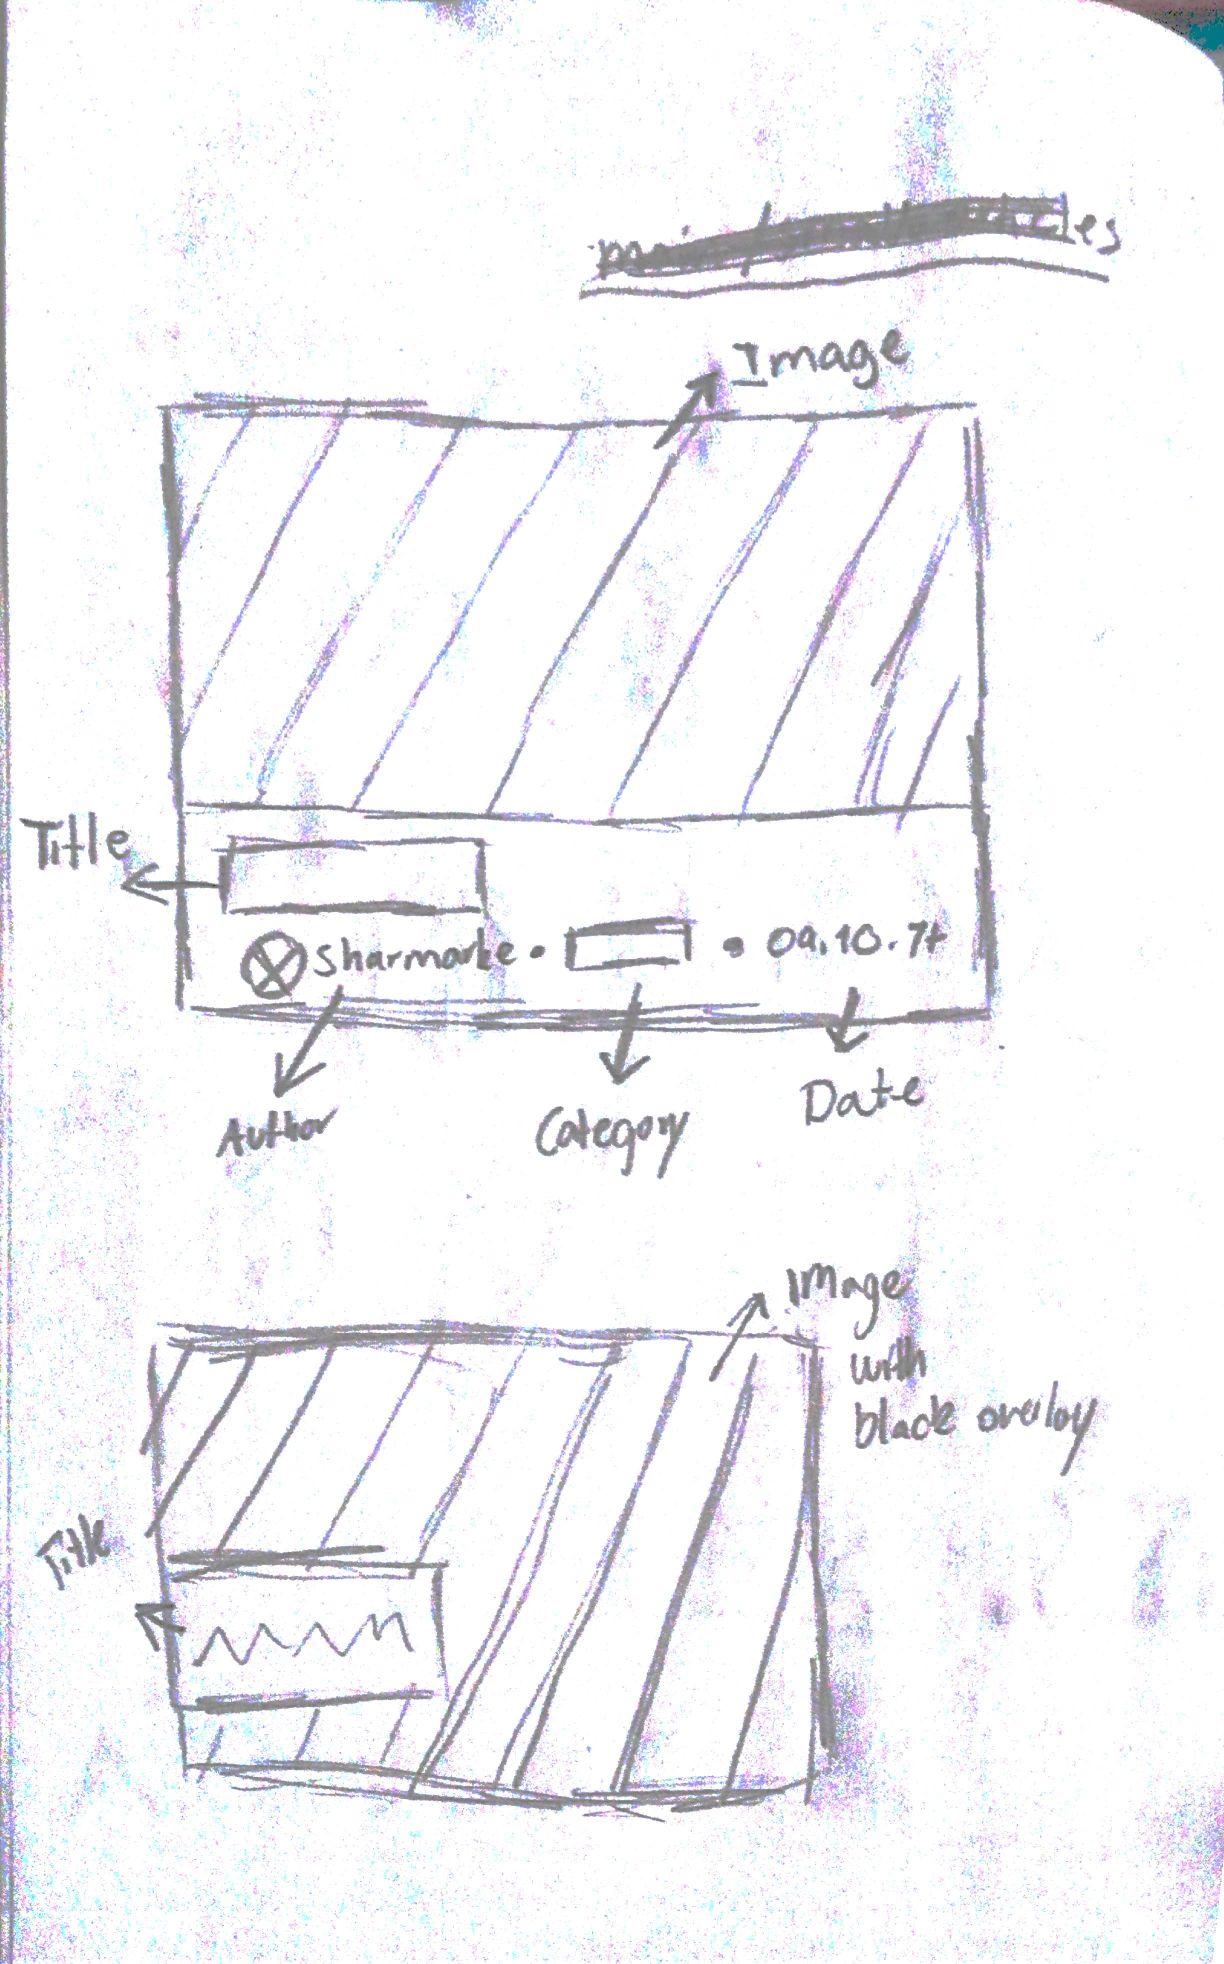 Image
Title
Sharmarke • • 09.10.17
Author
Category
Date
Image
with
black overlay
Title